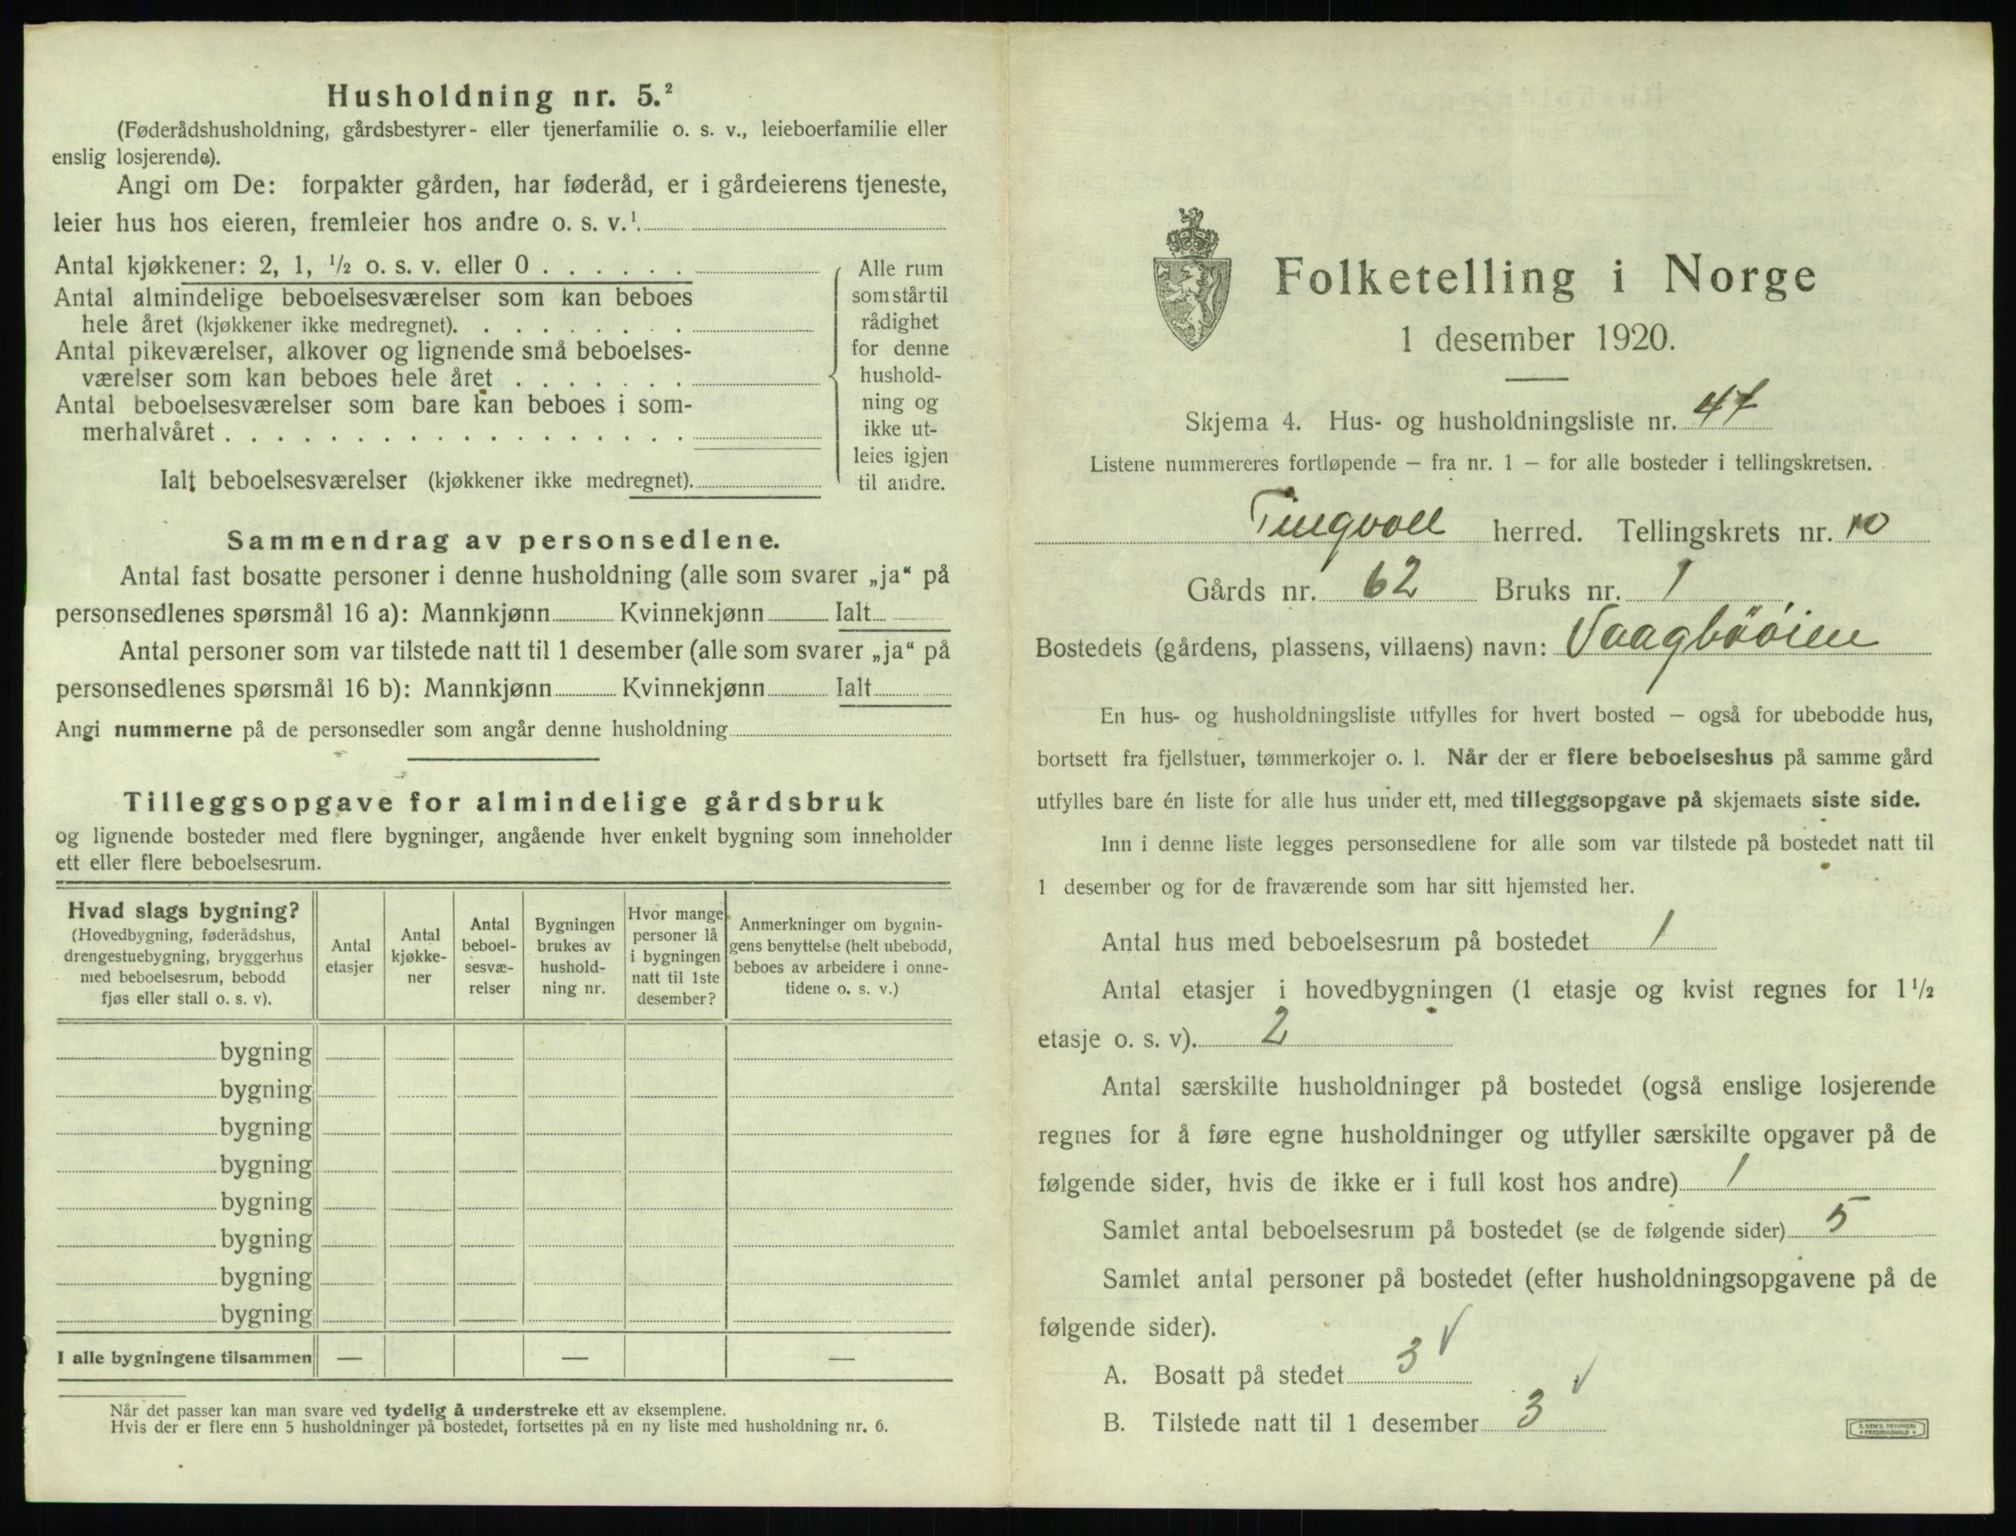 Husholdning nr. 5.²
(Føderådshusholdning, gårdsbestyrer- eller tjenerfamilie o. s. v., leieboerfamilie eller
enslig losjerende).
Angi om De: forpakter gården, har føderåd, er i gårdeierens tjeneste,
leier hus hos eieren, fremleier hos andre o. s. v.¹
Antal kjøkkener: 2, 1, ½ o. s. v. eller 0 . . . . . .
Antal almindelige beboelsesværelser som kan beboes
hele året (kjøkkener ikke medregnet). . . . . . . . .
Antal pikeværelser, alkover og lignende små beboelses-
værelser som kan beboes hele året . . . . . . .
Antal beboelsesværelser som bare kan beboes i som-
merhalvåret . . . . . . . . . . . . . . . . . .
Ialt beboelsesværelser (kjøkkener ikke medregnet).
Alle rum
som står til
rådighet
for denne
hushold-
ning og
ikke ut-
leies igjen
til andre.
Sammendrag av personsedlene.
Antal fast bosatte personer i denne husholdning (alle som svarer „ja“ på
personsedlenes spørsmål 16 a): Mannkjønn Kvinnekjønn Ialt
Antal personer som var tilstede natt til 1 desember (alle som svarer „ja“ på
personsedlenes spørsmål 16 b): Mannkjønn Kvinnekjønn Ialt
Angi nummerne på de personsedler som angår denne husholdning
Tilleggsopgave for almindelige gårdsbruk
og lignende bosteder med flere bygninger, angående hver enkelt bygning som inneholder
ett eller flere beboelsesrum.
Hvad slags bygning?
(Hovedbygning, føderådshus,
drengestuebygning, bryggerhus
med beboelsesrum, bebodd
fjøs eller stall o. s. v).
Antal
etasjer
Antal
kjøkke-
ner
Antal
beboel-
sesvæ-
relser
Bygningen
brukes av
hushold-
ning nr.
Hvor mange
personer lå
i bygningen
natt til 1ste
desember?
Anmerkninger om bygnin-
gens benyttelse (helt ubebodd,
beboes av arbeidere i onne-
tidene o. s. v.)
bygning
bygning
bygning
bygning
bygning
bygning
bygning
bygning
I alle bygningene tilsammen — — —
Når det passer kan man svare ved tydelig å understreke ett av eksemplene.
Hvis der er flere enn 5 husholdninger på bostedet, fortsettes på en ny liste med husholdning nr. 6.
Folketelling i Norge
1 desember 1920.
Skjema 4. Hus- og husholdningsliste nr. 47
Listene nummereres fortløpende – fra nr. 1 – for alle bosteder i tellingskretsen.
Tingvoll herred. Tellingskrets nr. 10
Gårds nr. 62 Bruks nr. 1
Bostedets (gårdens, plassens, villaens) navn: Vaagbööien
En hus- og husholdningsliste utfylles for hvert bosted – også for ubebodde hus,
bortsett fra fjellstuer, tømmerkojer o. l. Når der er flere beboelseshus på samme gård
utfylles bare én liste for alle hus under ett, med tilleggsopgave på skjemaets siste side.
Inn i denne liste legges personsedlene for alle som var tilstede på bostedet natt til
1 desember og for de fraværende som har sitt hjemsted her.
Antal hus med beboelsesrum på bostedet 1
Antal etasjer i hovedbygningen (1 etasje og kvist regnes for 1½
etasje o. s. v). 2
Antal særskilte husholdninger på bostedet (også enslige losjerende
regnes for å føre egne husholdninger og utfyller særskilte opgaver på de
følgende sider, hvis de ikke er i full kost hos andre) 1
Samlet antal beboelsesrum på bostedet (se de følgende sider) 5
Samlet antal personer på bostedet (efter husholdningsopgavene på de
følgende sider).
A. Bosatt på stedet 3 √
B. Tilstede natt til 1 desember 3 √